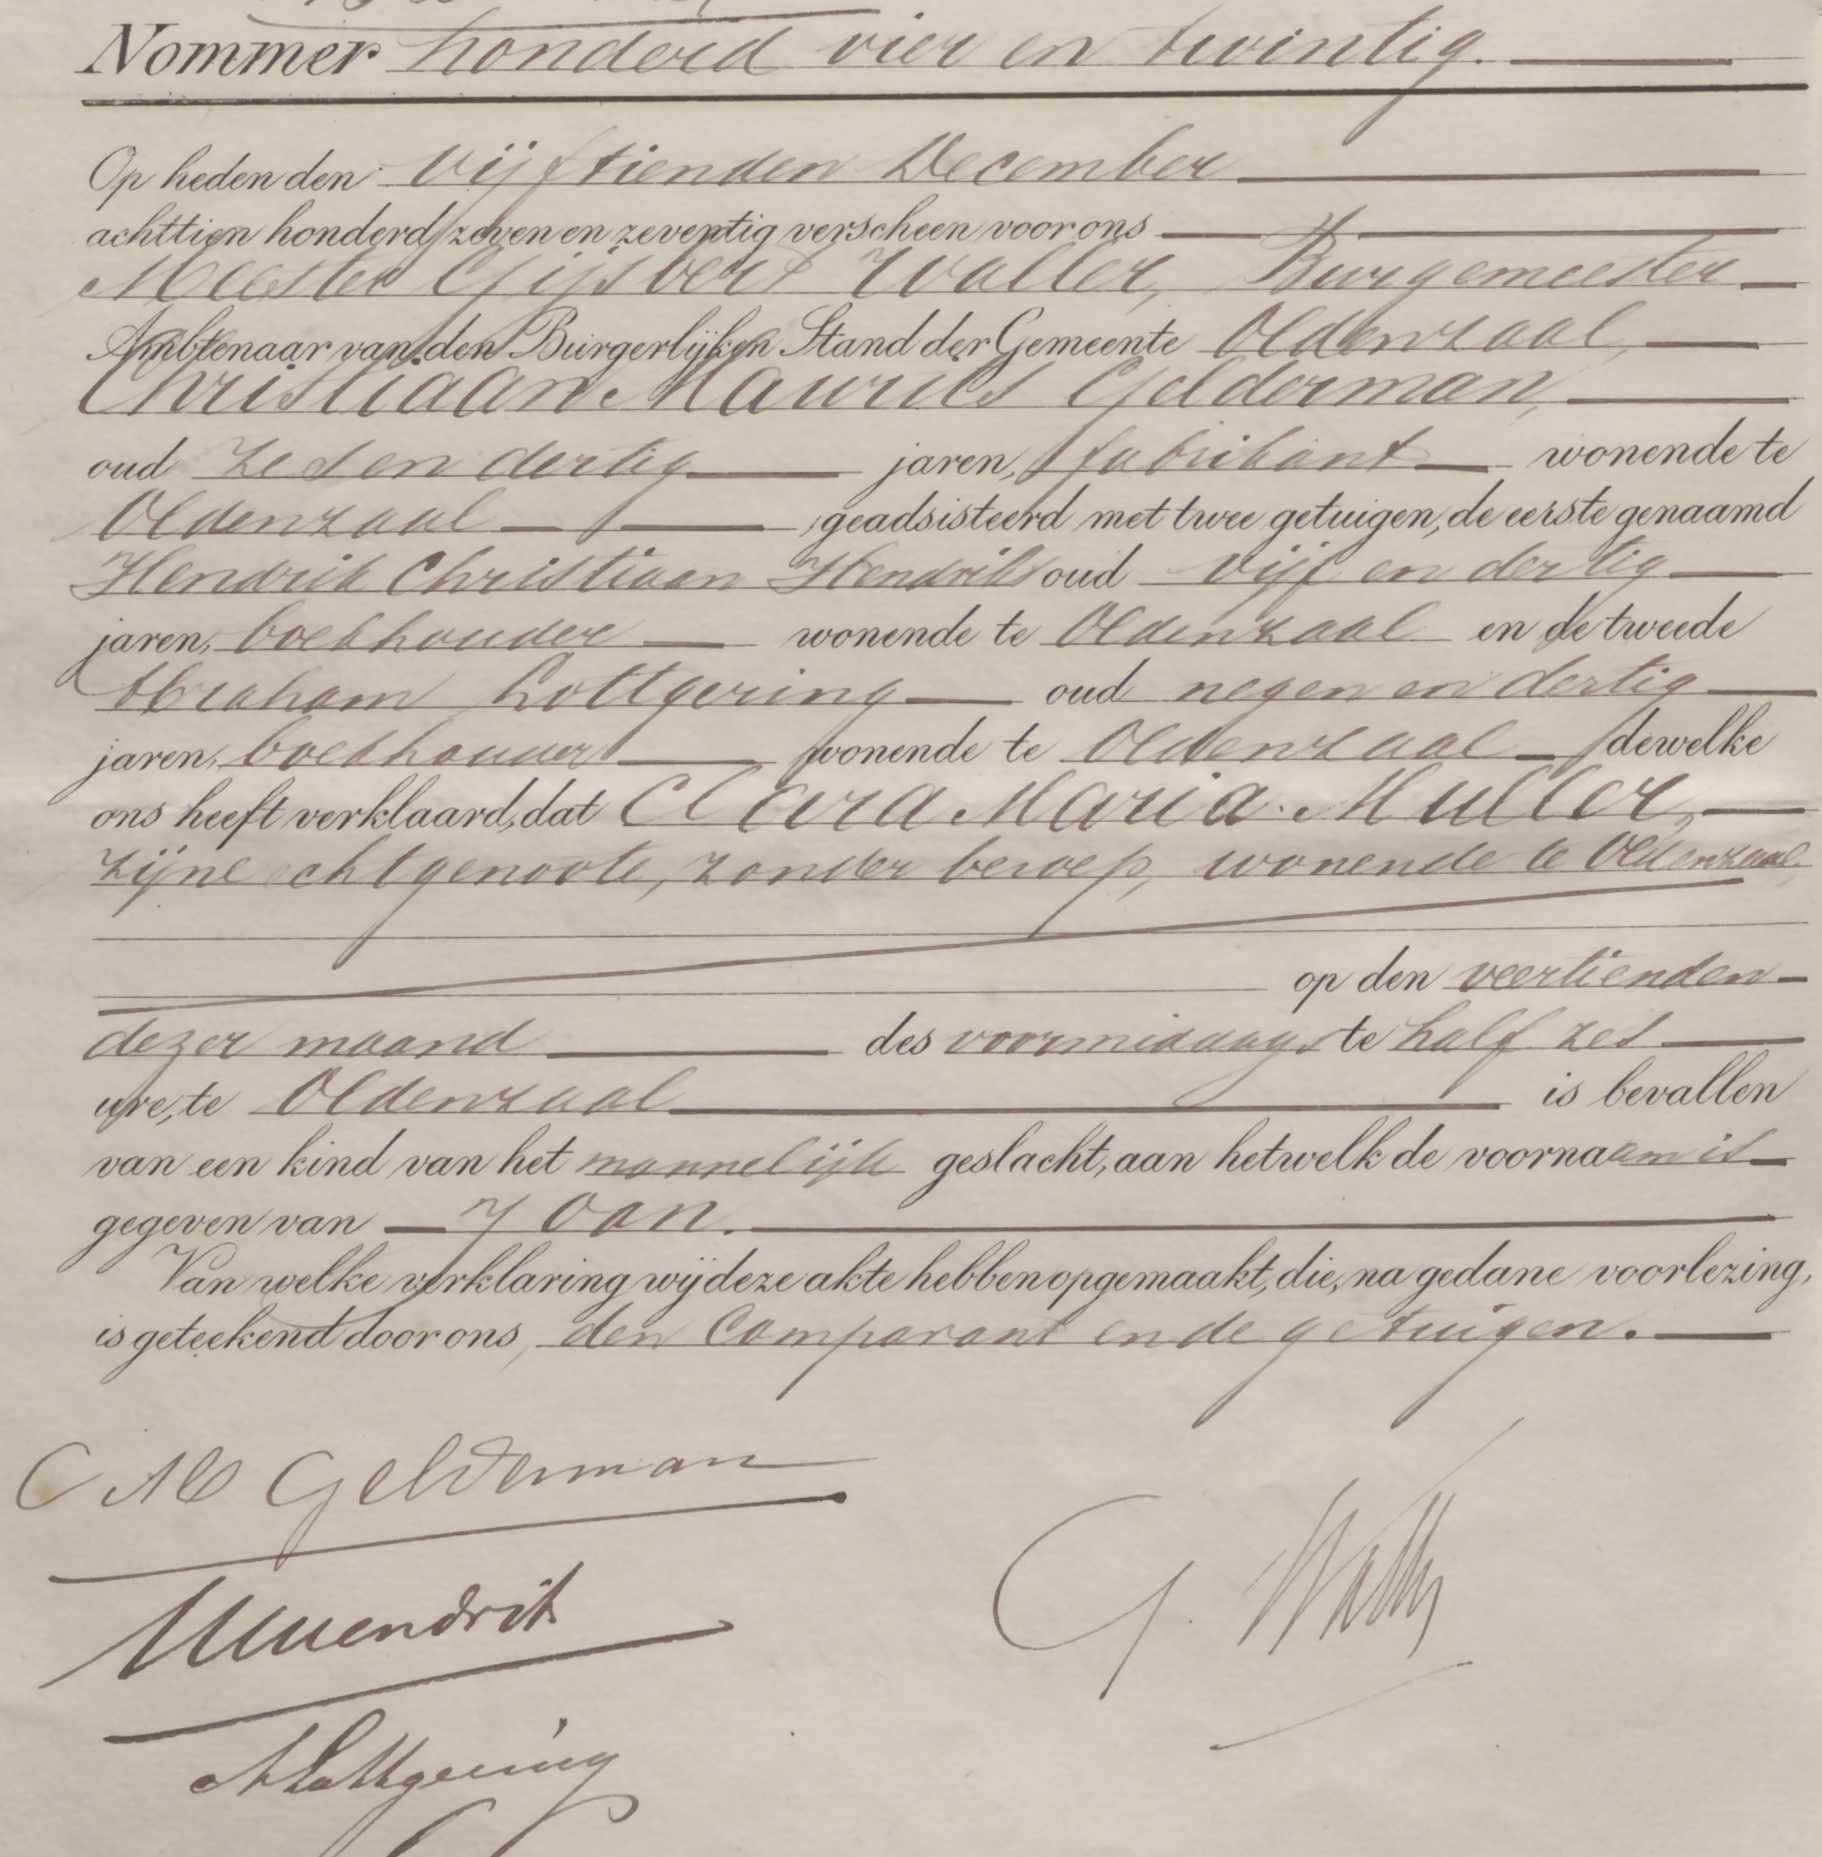 Nommer honderd vier en twintig.
Op heden den vijftienden December
achttien honderd zeven en zeventig verscheen voor ons
Meester Gijsbert Waller, Burgemeester
Ambtenaar van den Burgerlijken Stand der Gemeente Oldenzaal,
Christiaan Maurits Gelderman,
oud zes en dertig jaren, fabrikant wonende te
Oldenzaal, geadsisteerd met twee getuigen, de eerste genaamd
Hendrik Christiaan Hendriks oud vijf en dertig
jaren, boekhouder wonende te Oldenzaal en de tweede
Abraham Lottgering oud negen en dertig
jaren, boekhouder wonende te Oldenzaal dewelke
ons heeft verklaard, dat Clara Maria Muller,
zijne echtgenoote, zonder beroep, wonende te Oldenzaal,
op den veertienden
dezer maand des voormiddags te half zes
ure, te Oldenzaal is bevallen
van een kind van het mannelijk geslacht, aan hetwelk de voornaam is
gegeven van Joan.
Van welke verklaring wij deze akte hebben opgemaakt, die, na gedane voorlezing,
is geteekend door ons, den Comparant en de getuigen.
C M Gelderman
G. Waller
ALottgering